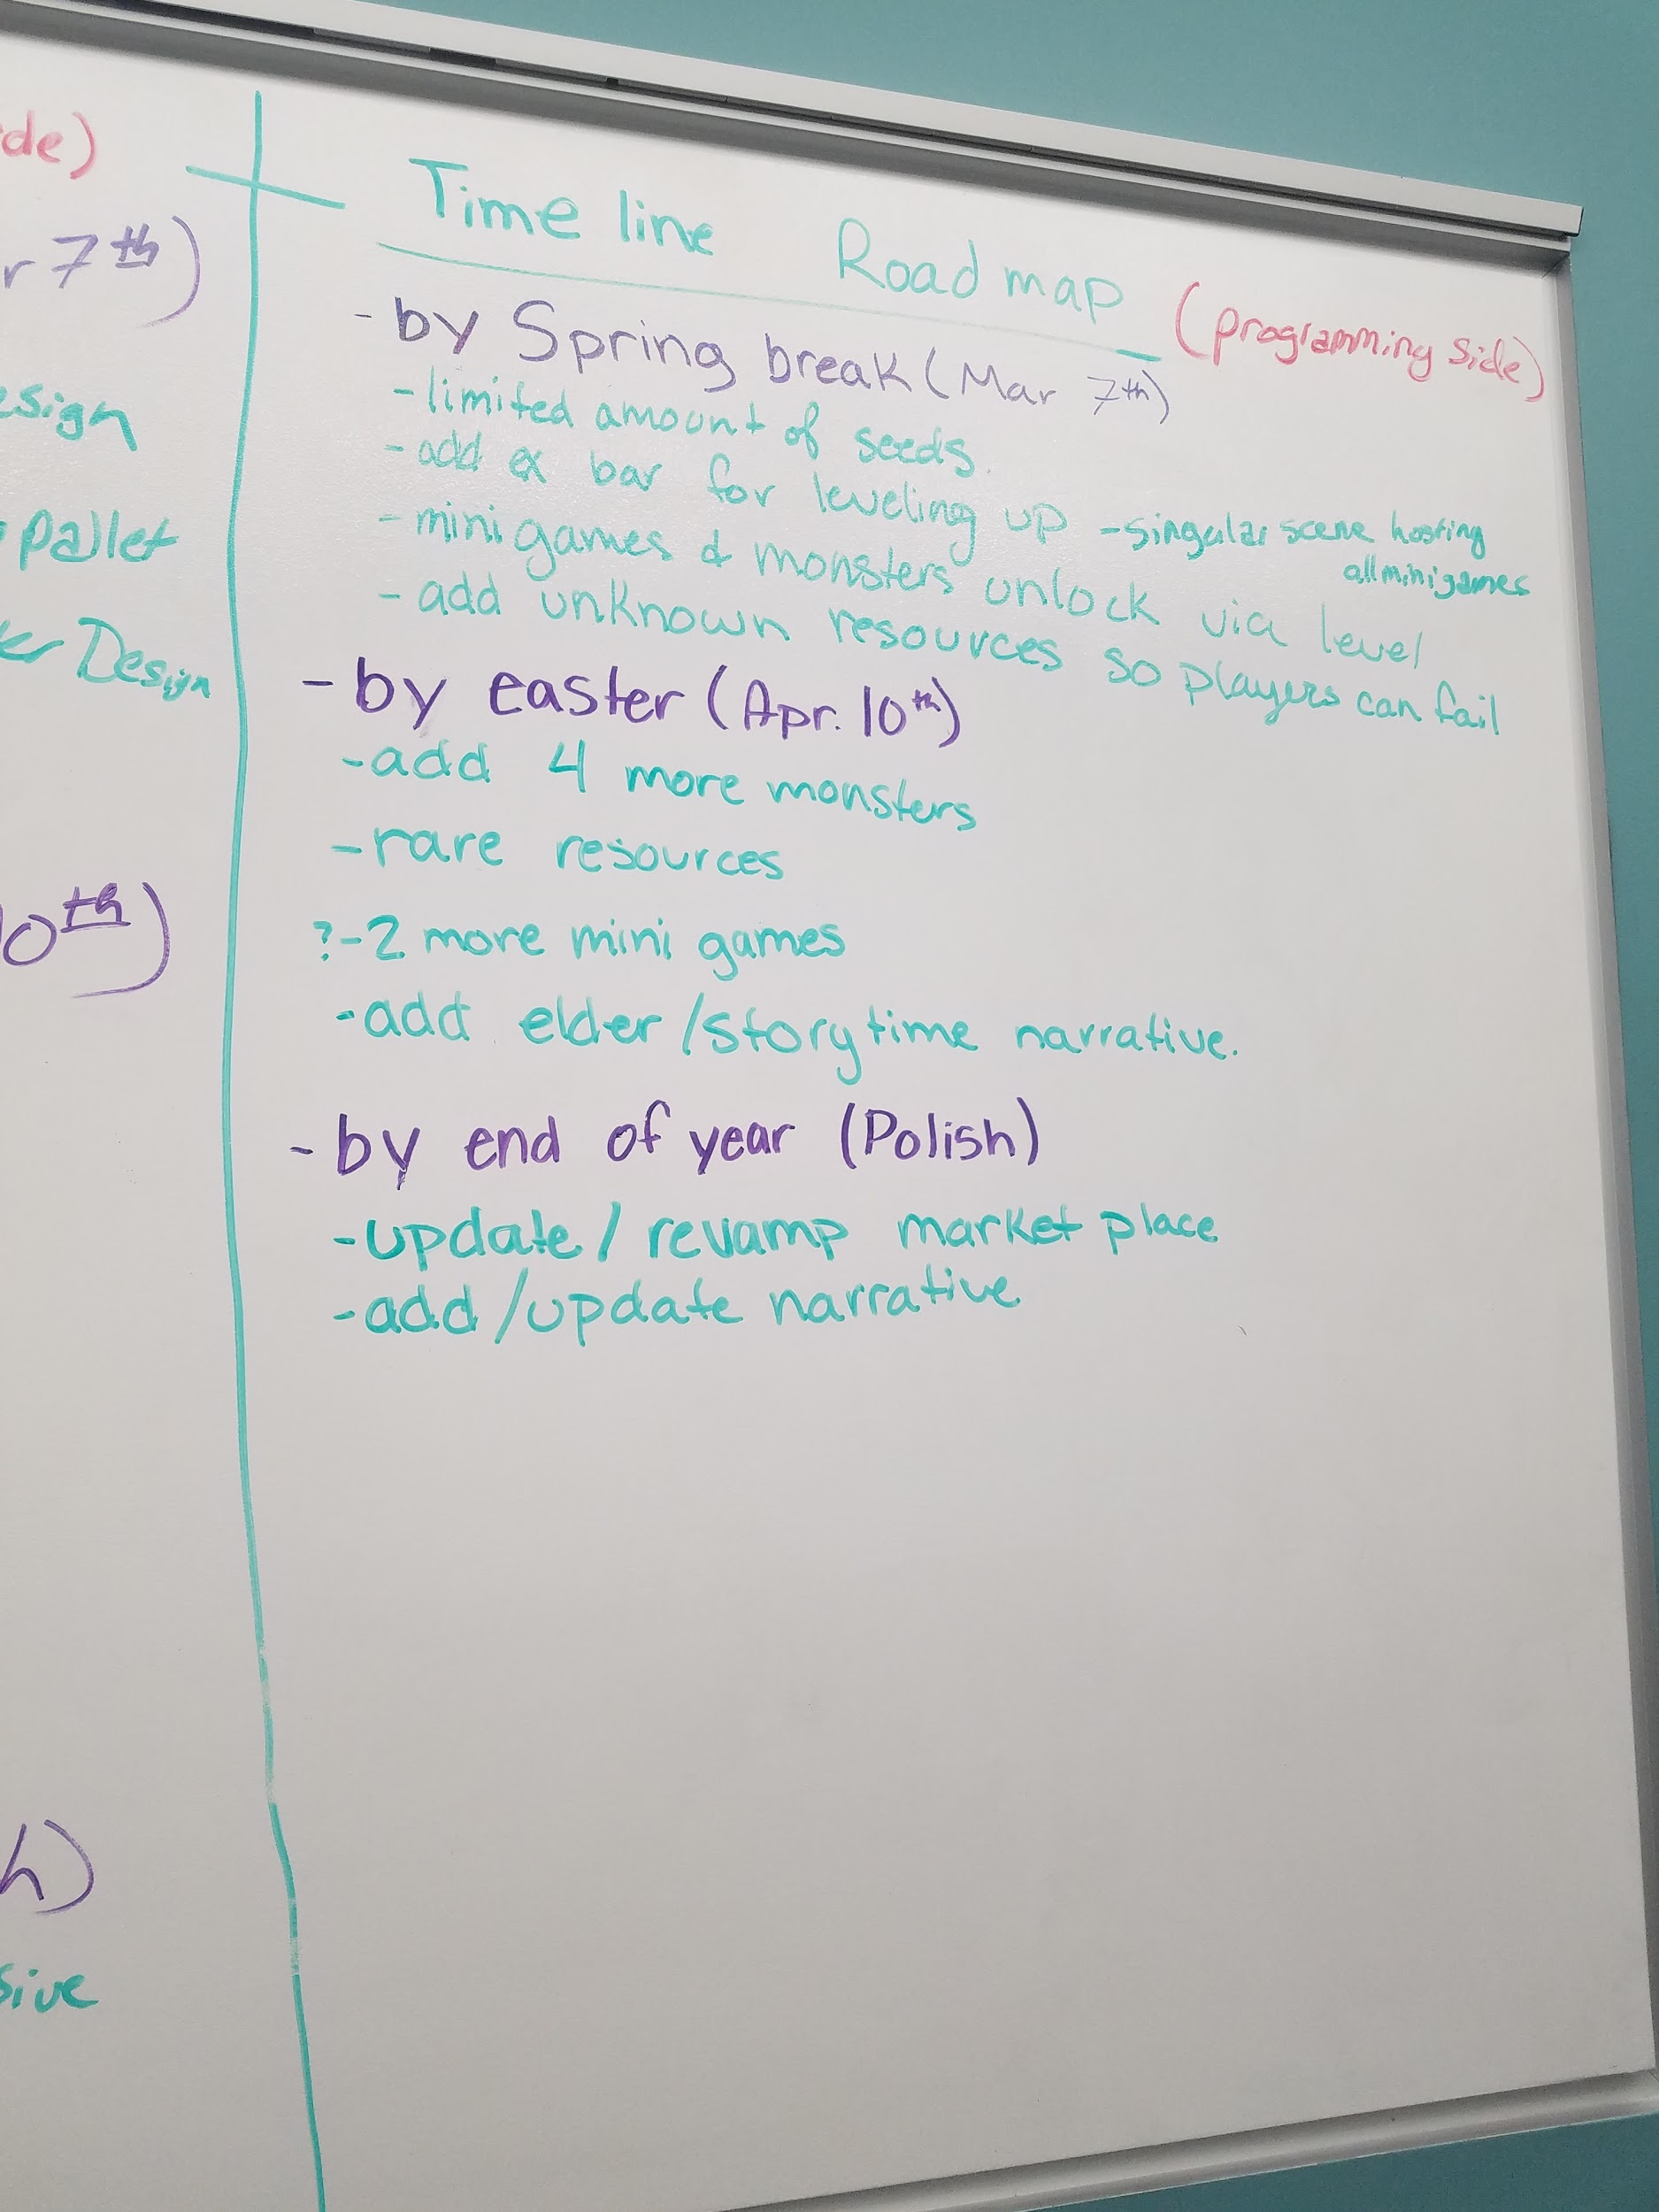 de)
r 7th)
esign
pallet
er Design
10th)
h)
sive
Time line Road map (programming side)
- by Spring break (Mar 7th)
- limited amount of seeds.
- add a bar for leveling up - singular scene hosting
all minigames
- mini games & monsters unlock via level
- add unknown resources so players can fail
- by easter (Apr. 10th)
- add 4 more monsters
- rare resources
? - 2 more mini games
- add elder / story time narrative.
- by end of year (Polish)
- update / revamp market place
- add / update narrative